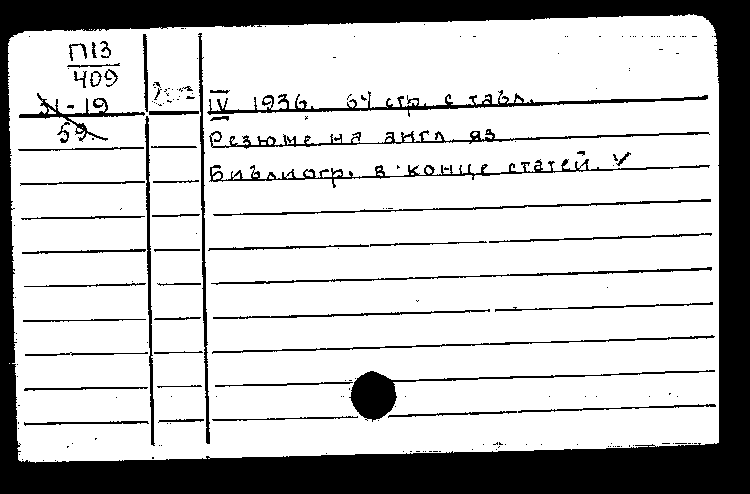 П13
409
31-19
59.
IV 1936. 64 стр. с табл.
Резюме на англ. яз
Библиогр. в конце статей. ✓